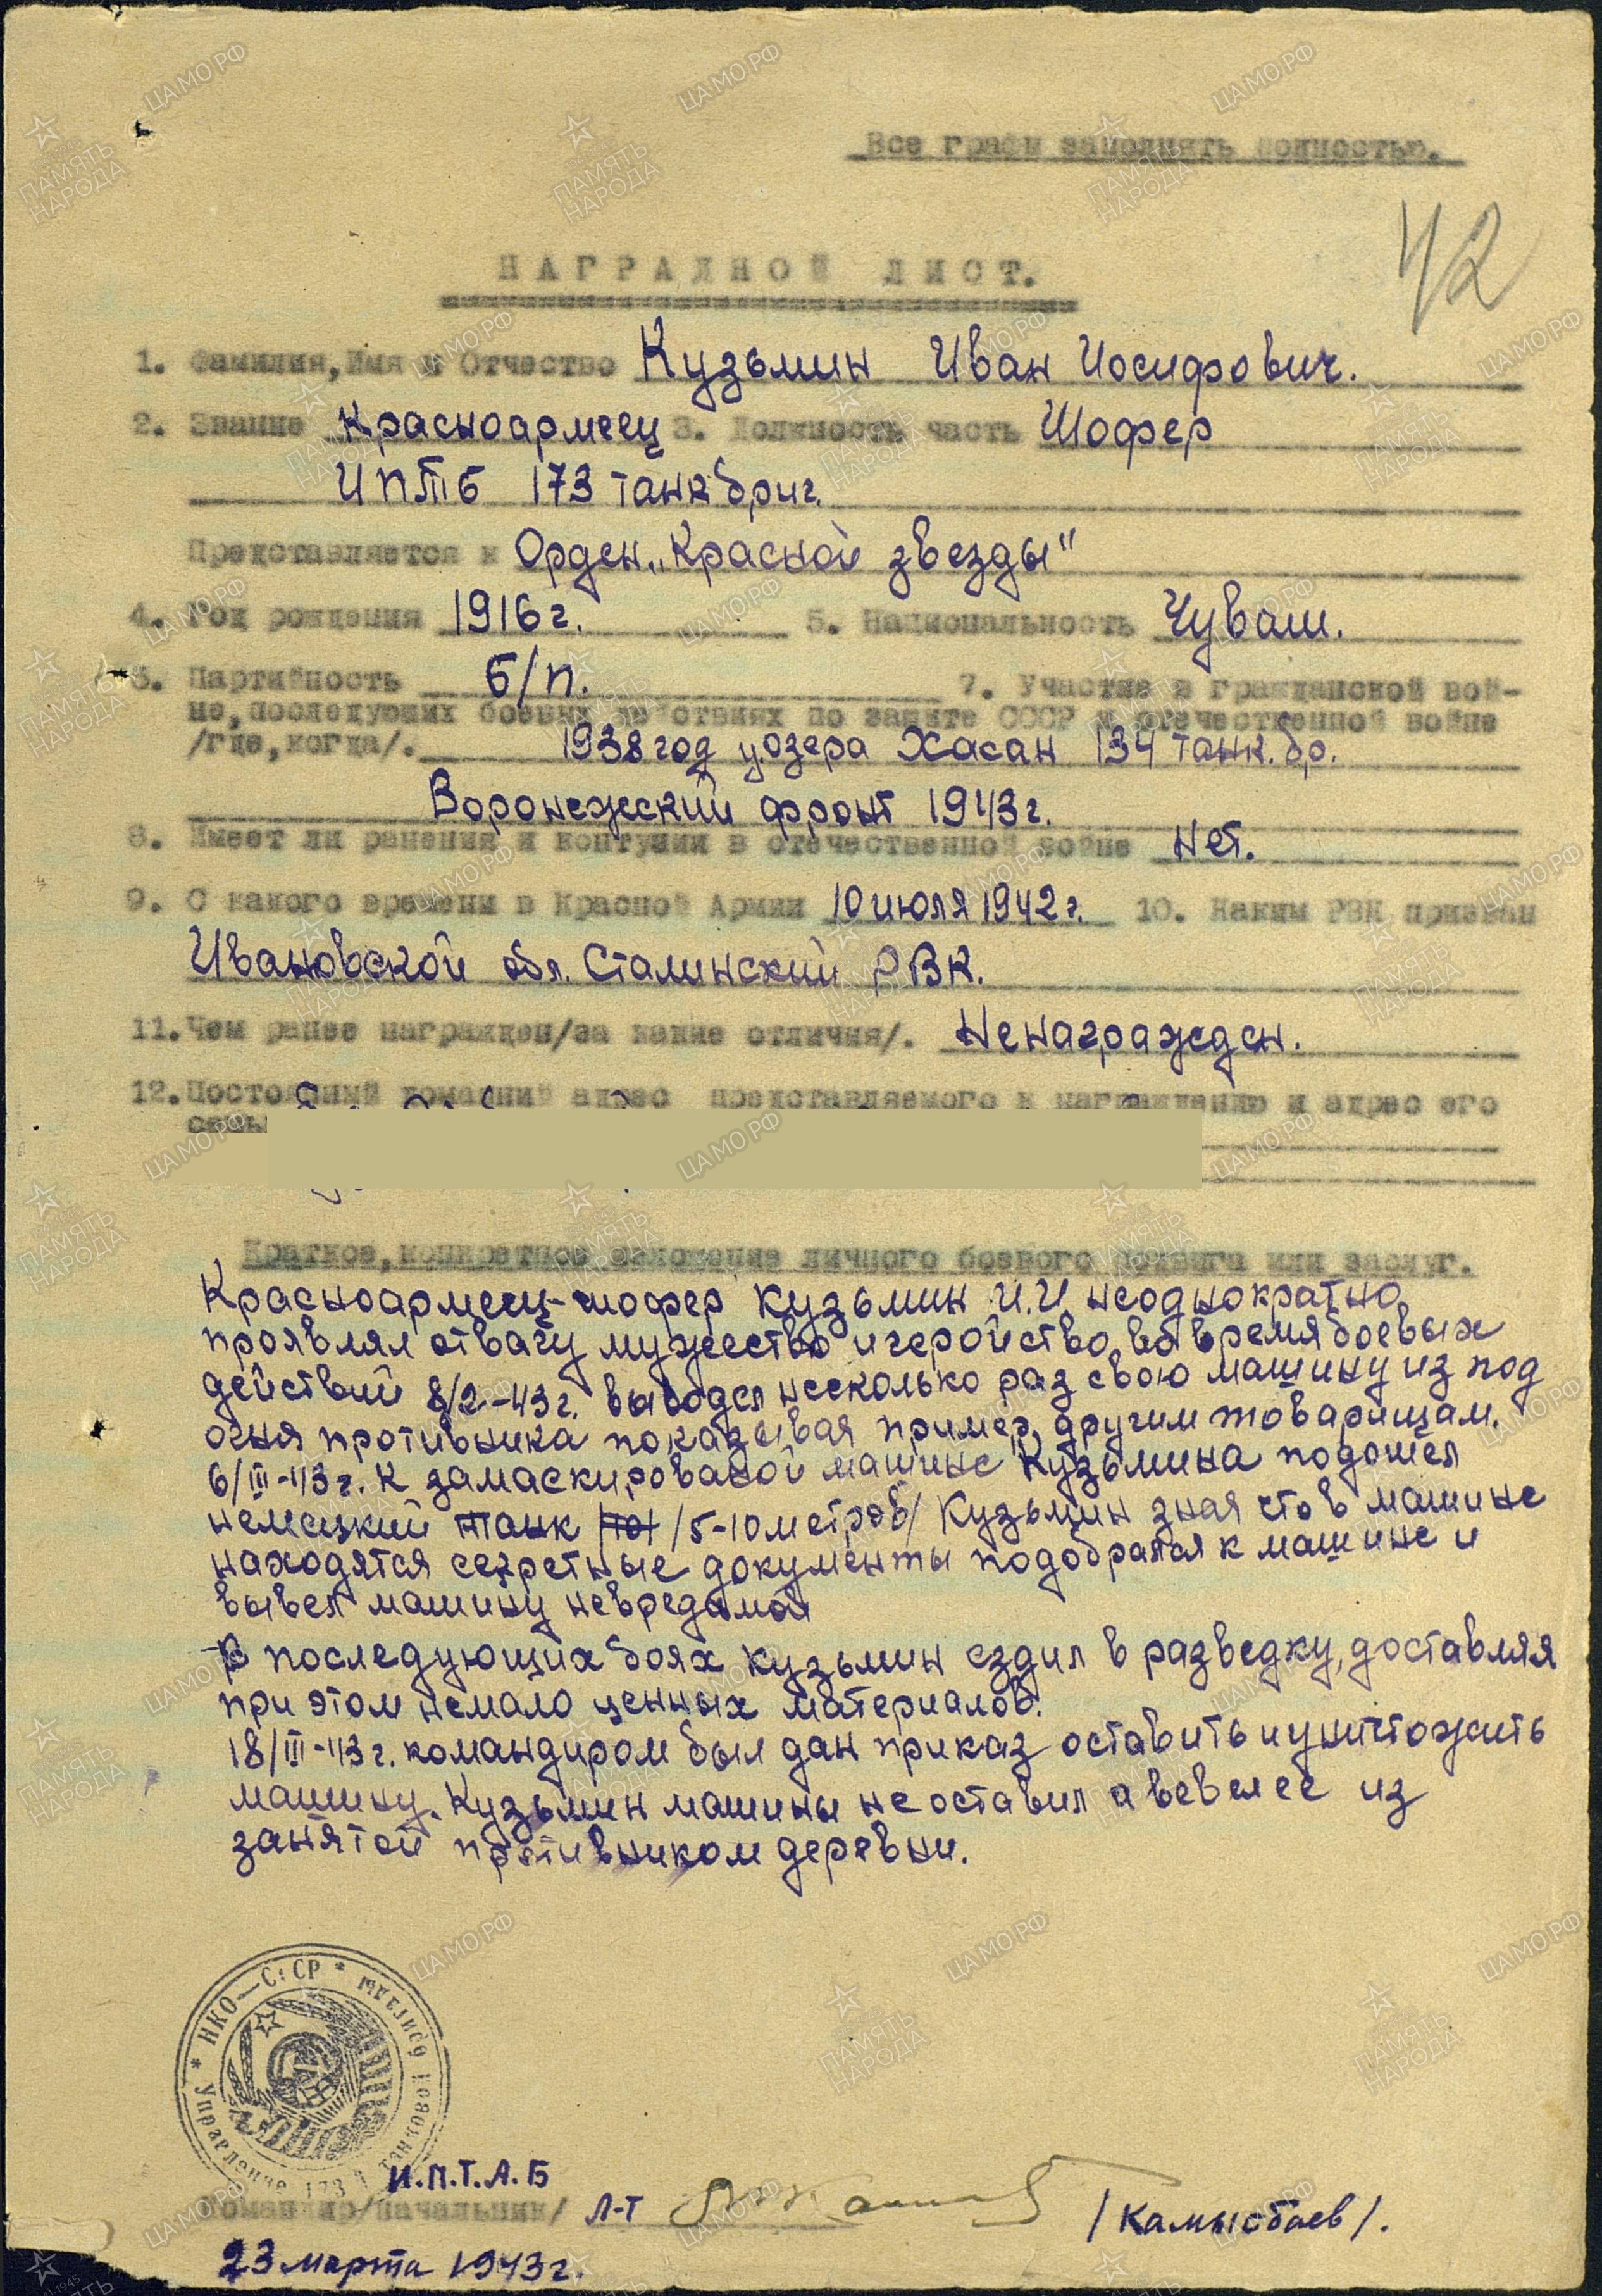 Все графы заполнять полностью.
42
НАГРАДНОЙ ЛИСТ.
1. Фамилия, Имя и Отчество Кузьмин Иван Иосифович.
2. Звание Красноармеец 3. Должность часть Шофер
ИПТБ 173 танк бриг.
Представляется к Орден „Красной звезды"
4. Год рождения 1916 г. 5. Национальность Чуваш.
6. Партийность б/п. 7. Участие в гражданской вой-
не, последующих боевых действиях по защите СССР и отечественной войне
/где, когда/. 1938 год у озера Хасан 134 танк. бр.
Воронежский фронт 1943 г.
8. Имеет ли ранения и контузии в отечественной войне Нет.
9. С какого времени в Красной Армии 10 июля 1942 г. 10. Каким РВК призван
Ивановской обл. Сталинский РВК.
11. Чем ранее награжден/за какие отличия/. Ненагражден.
12. Постоянный домашний адрес представляемого к награждению и адрес его
семьи
Краткое, конкретное изложение личного боевого подвига или заслуг.
Красноармеец-шофер Кузьмин И.И. неоднократно
проявлял отвагу мужество и геройство во время боевых
действий 8/2-43 г. выводя несколько раз свою машину из под
огня противника показывая пример другим товарищам.
6/III-43 г. К замаскированой машине Кузьмина подошёл
немецкий танк /5-10 метров/ Кузьмин зная что в машине
находятся секретные документы подобрался к машине и
вывел машину невредимой
В последующих боях Кузьмин ездил в разведку, доставляя
при этом немало ценных материалов.
18/III-43 г. командиром был дан приказ оставить и уничтожить
машину. Кузьмин машины не оставил а вевел её из
занятой противником деревни.
* НКО—СССР * Управление 173 танковой бригады
И.П.Т.А.Б
Командир/начальник/ л-т /Камысбаев/.
23 марта 1943 г.
ПАМЯТЬ НАРОДА
ЦАМО.РФ